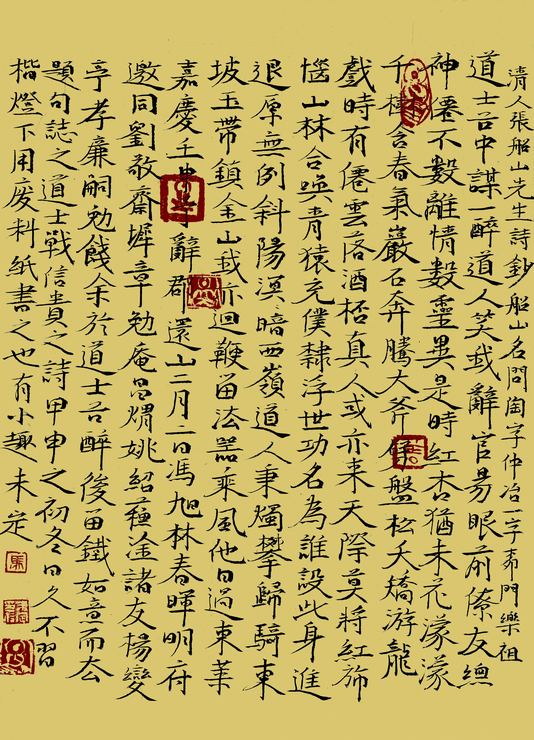 清人張船山先生詩鈔船山名問陶字仲冶一字柳門樂祖
道士谷中謀一醉道人笑我辭官易眼前僚友總
神僊不數離情數靈異是時紅杏猶未花濛濛
千樹含春氣巖石奔騰大斧盤松夭矯游龍
戲時有僊雲落酒桮真人或亦來天際莫將紅旆
惱山林合喚青猿充僕隸浮世功名為誰設此身進
退原無例斜陽溟暗西嶺道人秉燭攀歸騎東
坡玉帶鎖金山我亦迴鞭留法器乘風他日過東萊
嘉慶壬申辭郡還山二月二日馮旭林春暉明府
邀同劉敬齋墀章勉庵昌煟姚紹蘓淦諸友楊變
亭孝廉嗣勉餞余於道士谷醉後留鐵如意而去
題句誌之道士戰信貴之詩甲申之初冬日久不習
楷燈下用废料紙書之也有小趣未定